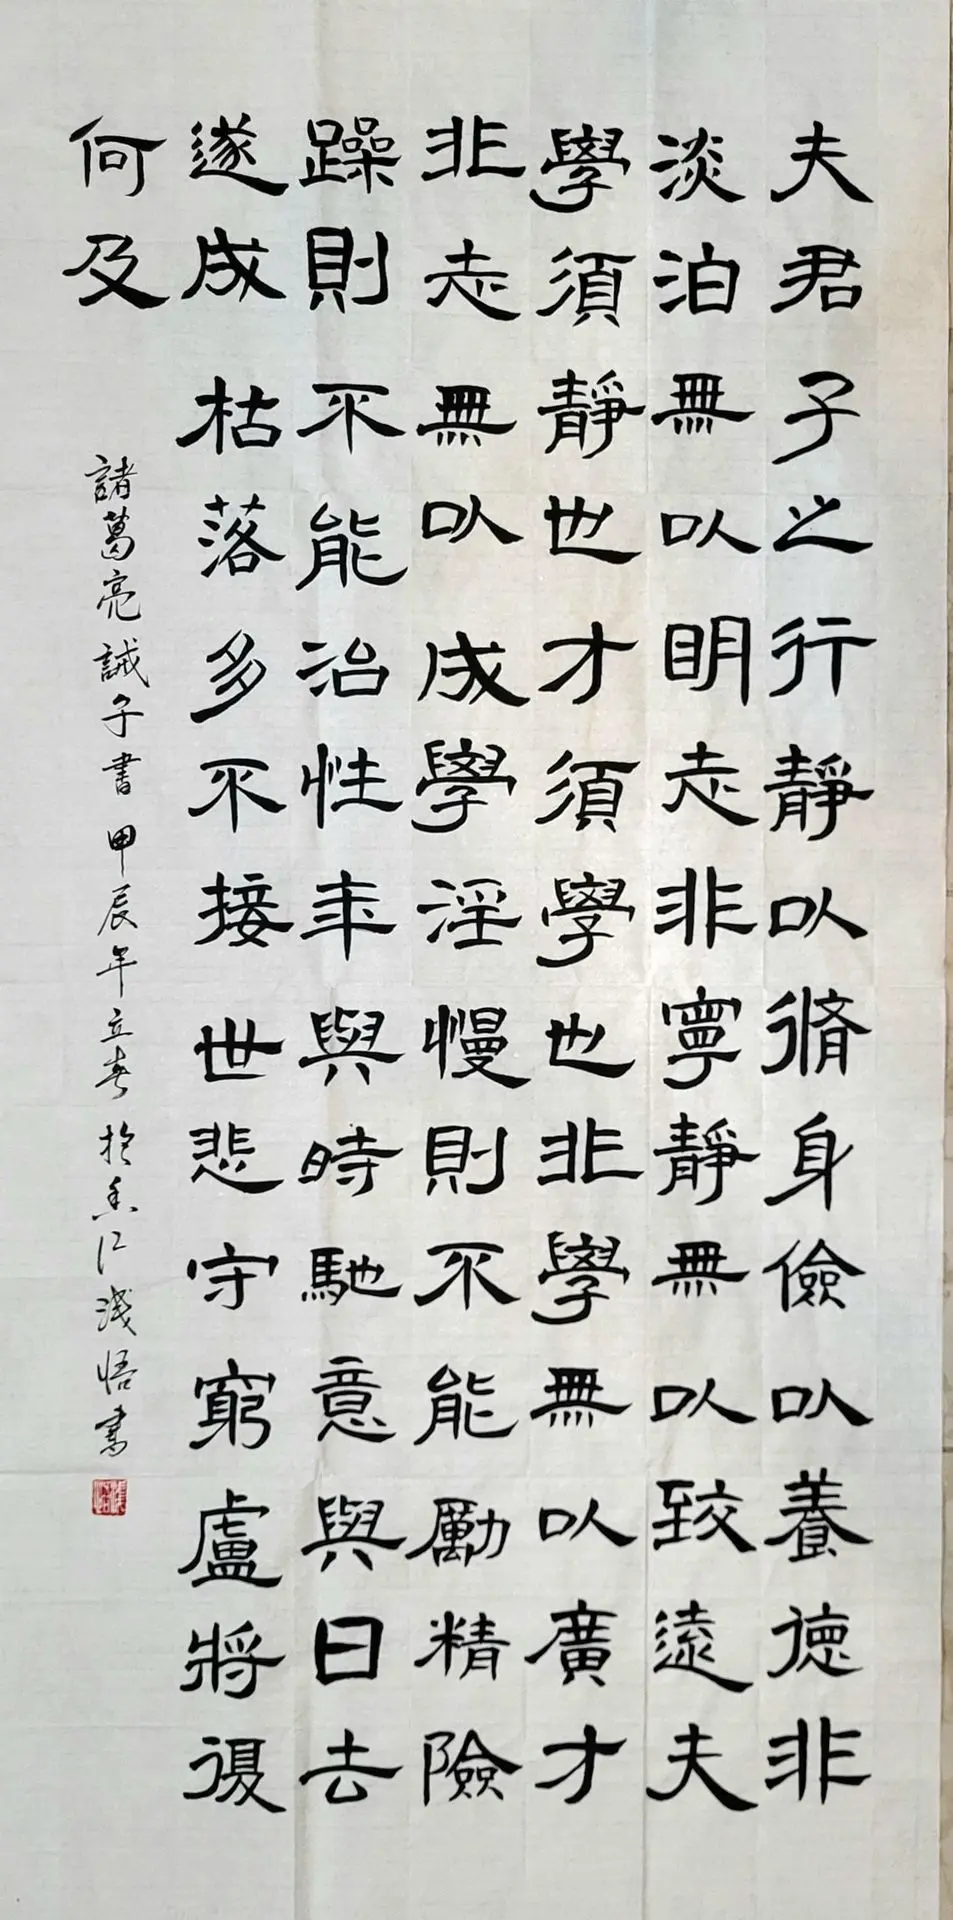 夫君子之行靜以脩身儉以養德非
淡泊無以明志非寧靜無以致遠夫
學須靜也才須學也非學無以廣才
非志無以成學淫慢則不能勵精險
躁則不能治性年與時馳意與日去
遂成枯落多不接世悲守窮盧將復
何及
諸葛亮誡子書甲辰年立春於香江淺悟書